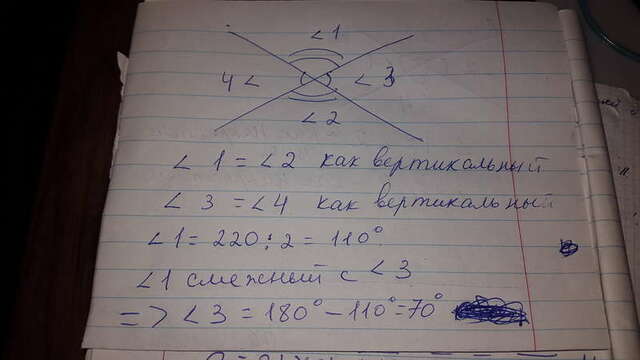 ∠1
4∠
∠3
∠2
∠1 = ∠2 как вертикальный
∠3 = ∠4 как вертикальный
∠1 = 220 : 2 = 110°
∠1 смежный с ∠3
=> ∠3 = 180° - 110° = 70°